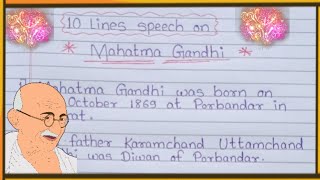 10 lines speech on
* Mahatma Gandhi *
Mahatma Gandhi was born on
October 1869 at Porbandar in
father Karamchand Uttamchand
was Diwan of Porbandar.